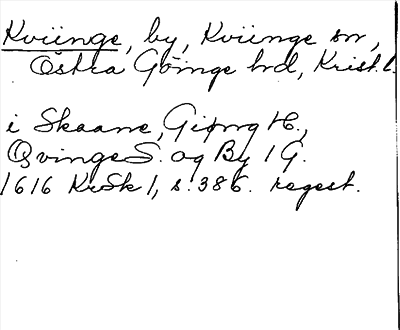 Kviinge, by, Kviinge sn,
Östra Göinge hrd, Krist. l.
i Skaane, Giøng H.,
Qvinge S. og By 1 G.
1616 KrSk 1, s. 386. regest.